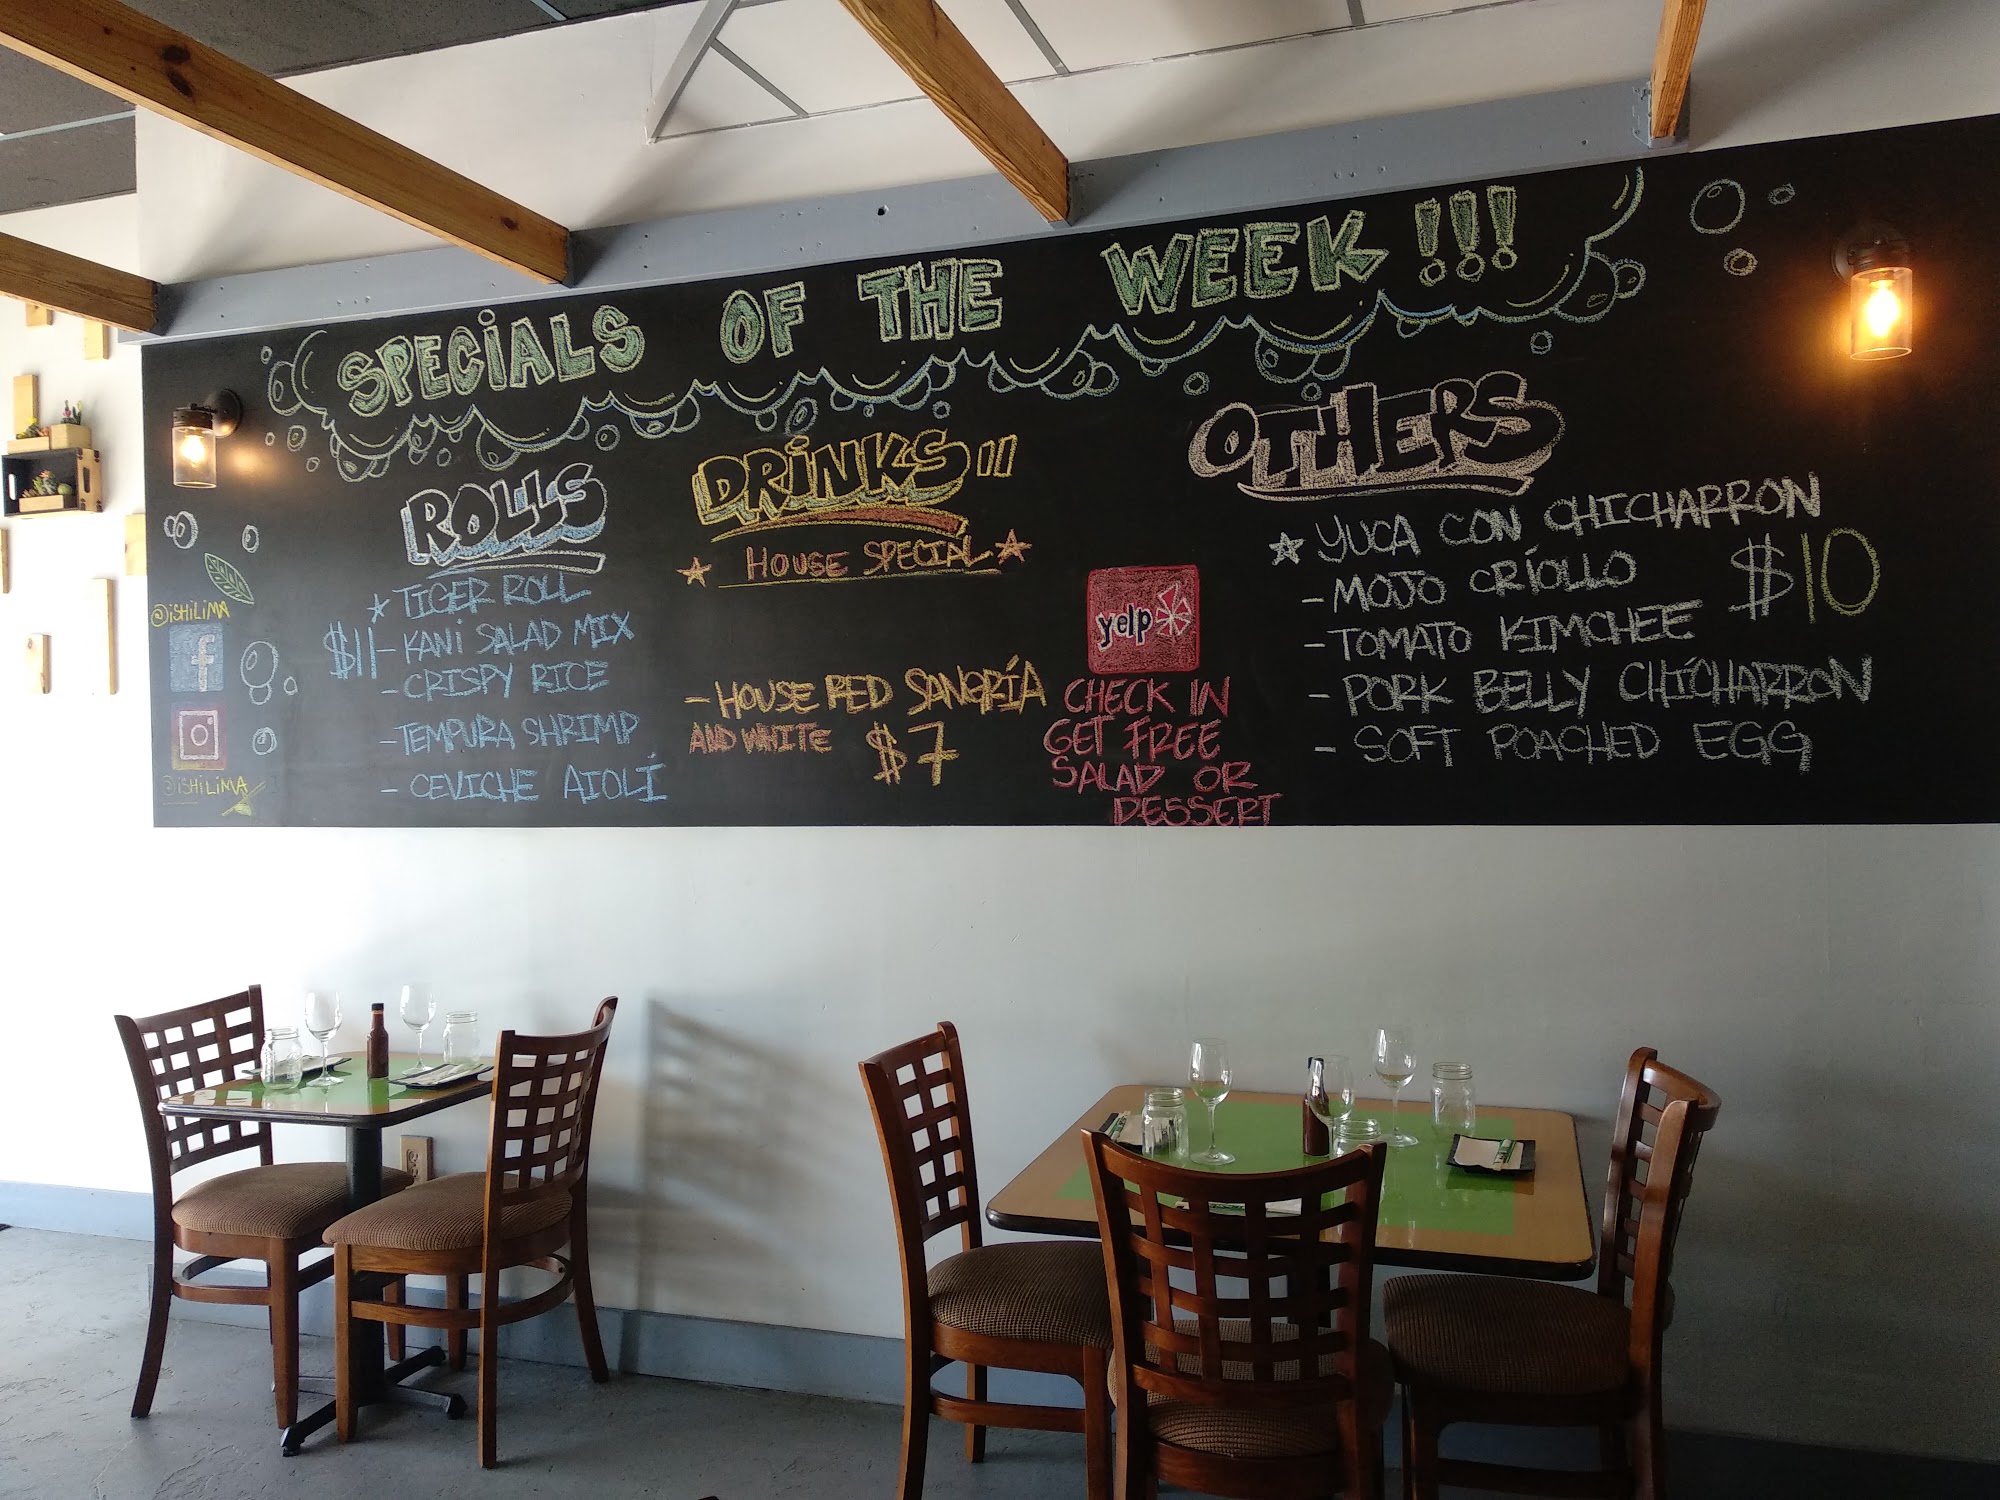 SPECIALS OF THE WEEK!!!
ROLLS
TIGER ROLL
$11 - KANI SALAD MIX
- CRISPY RICE
- TEMPURA SHRIMP
- CEVICHE AIOLÍ
DRINKS
HOUSE SPECIAL
- HOUSE RED SANGRÍA
AND WHITE $7
yelp
CHECK IN
GET FREE
SALAD OR
DESSERT
OTHERS
YUCA CON CHICHARRON
- MOJO CRÍOLLO $10
- TOMATO KIMCHEE
- PORK BELLY CHÍCHARRON
- SOFT POACHED EGG
@iSHiLiMA
f
@iSHiLiMA